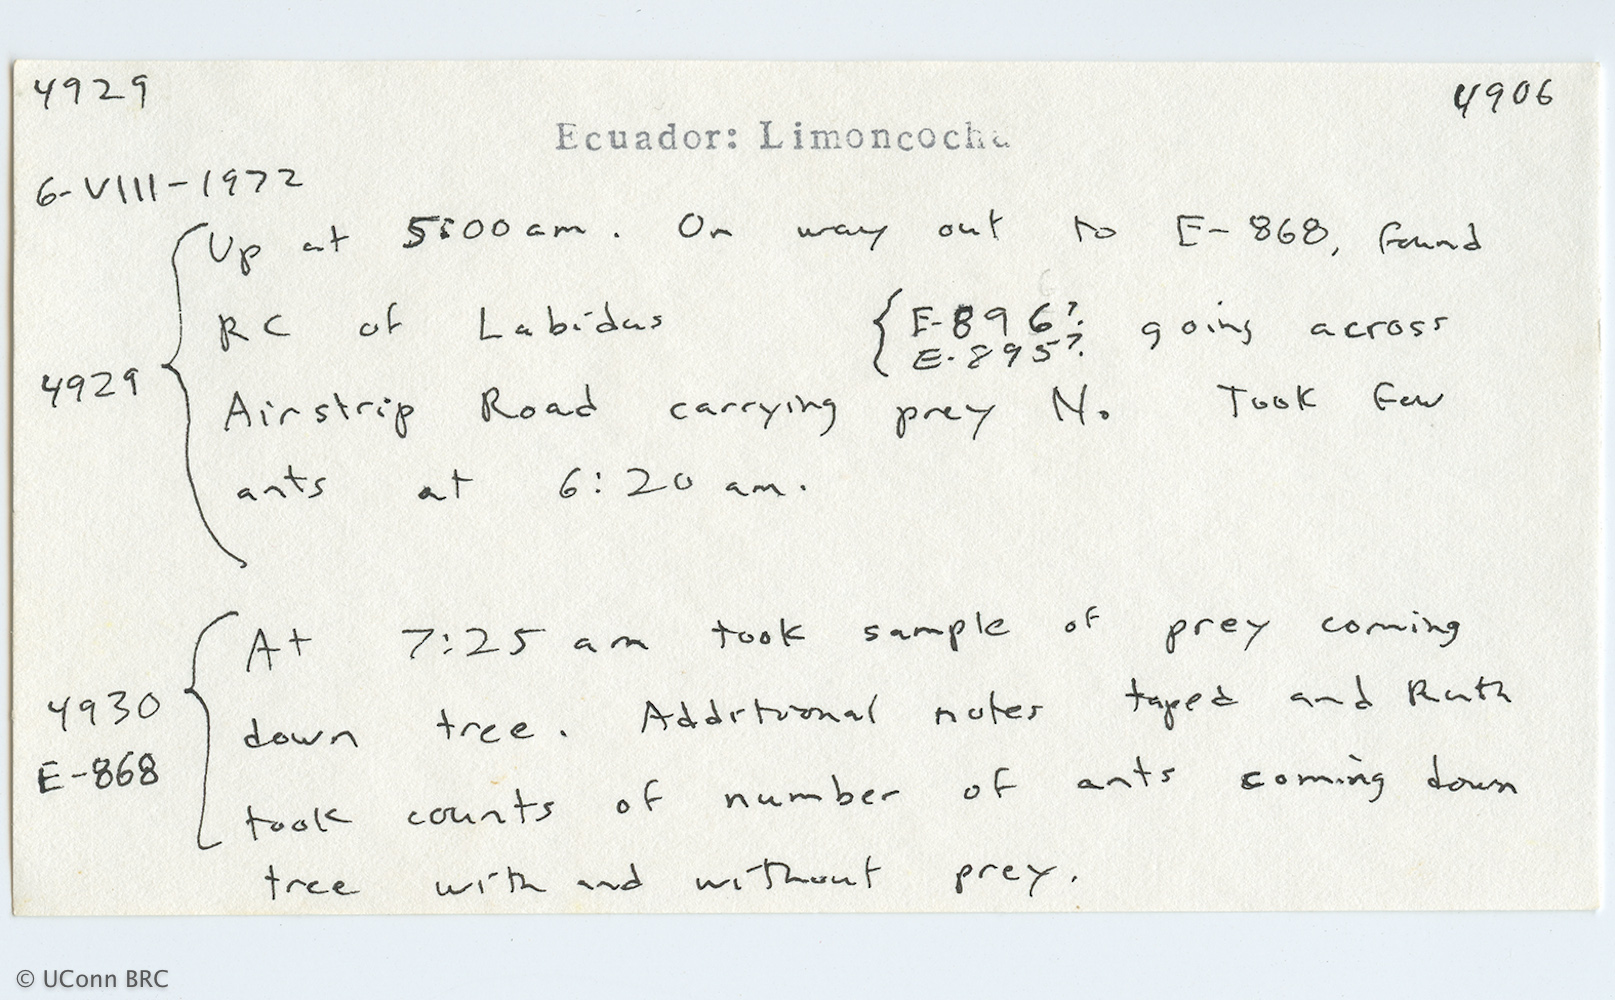 4929
4906
Ecuador: Limoncocha
6-VIII-1972
Up at 5:00 am. On way out to E-868, found
RC of Labidus { E-896? going across
E-895?
4929
Airstrip Road carrying prey N. Took few
ants at 6:20 am.
At 7:25 am took sample of prey coming
4930
down tree. Additional notes taped and Ruth
E-868
took counts of number of ants coming down
tree with and without prey.
© UConn BRC